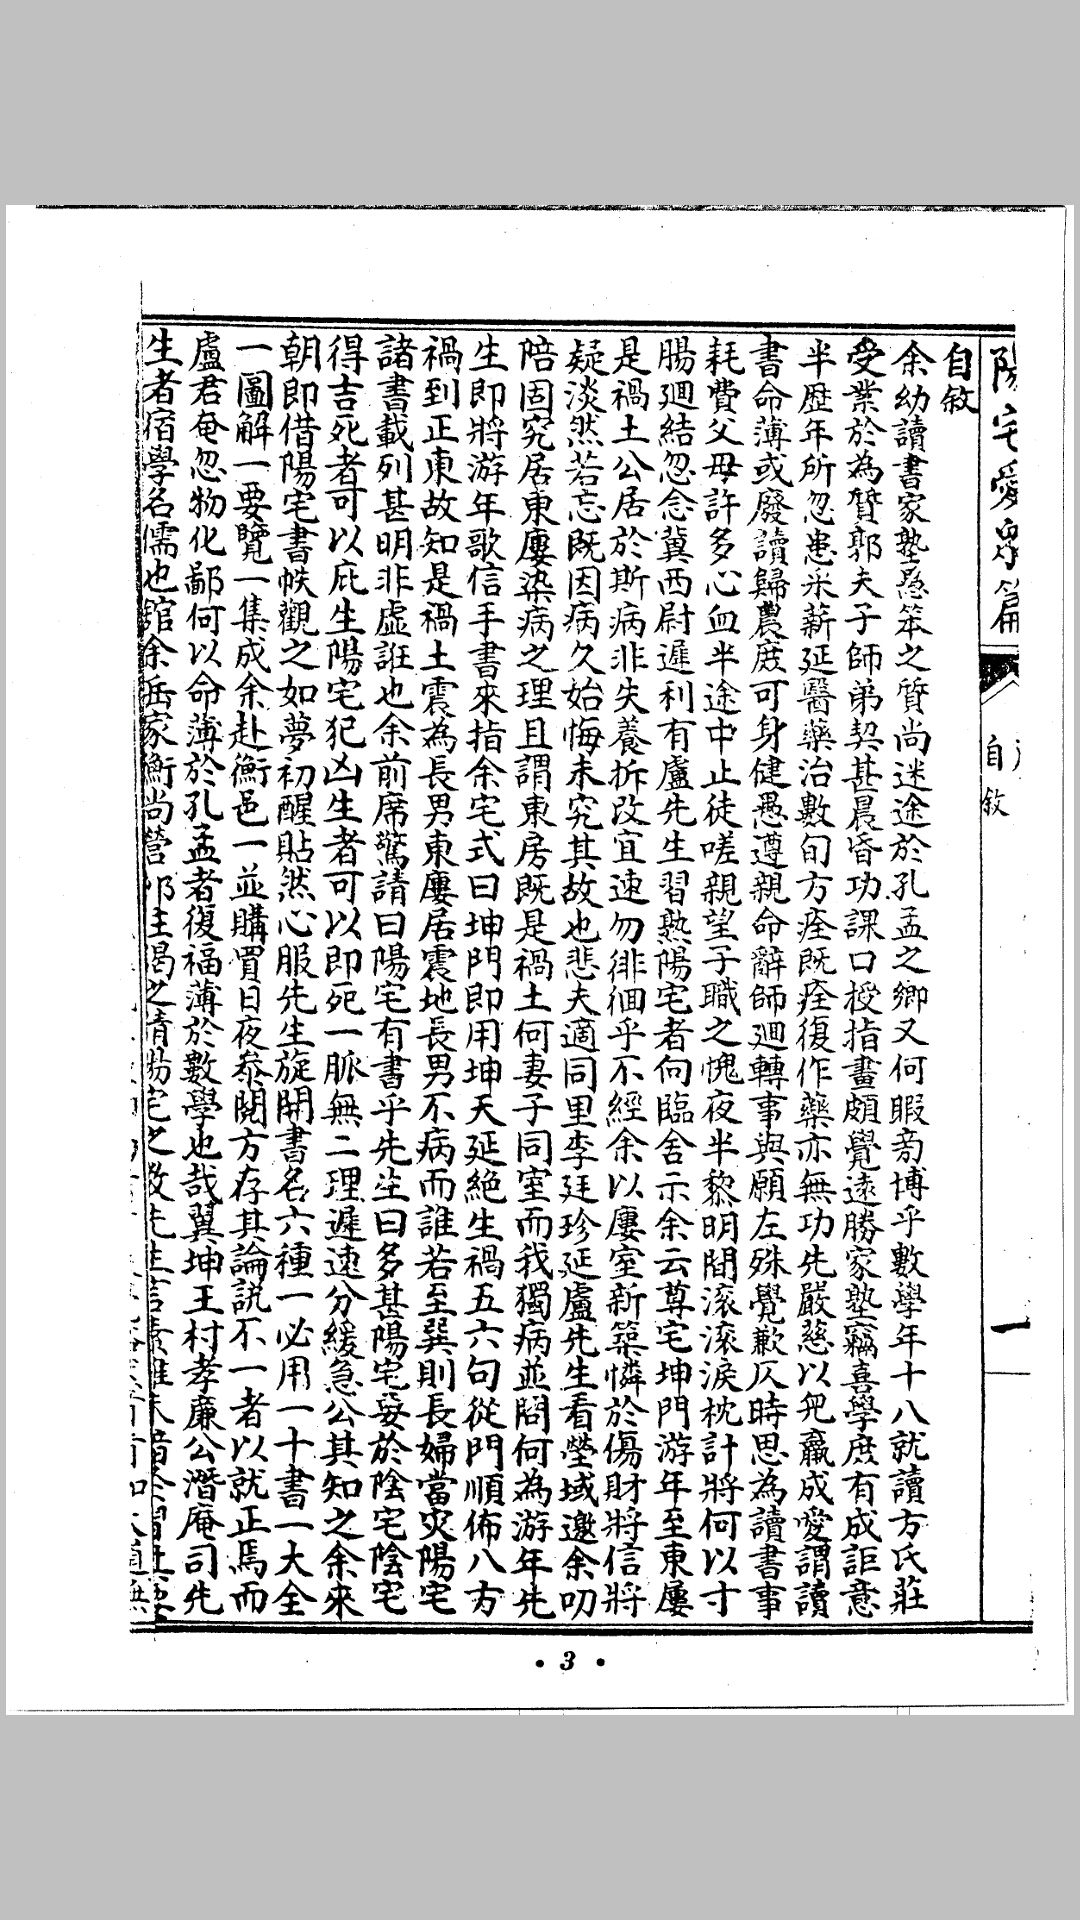 陽宅愛眾篇
自敘
一
自敘
余幼讀書家塾愚笨之質尚迷途於孔孟之鄉又何暇旁博乎數學年十八就讀方氏莊
受業於為贊郭夫子師弟契甚晨昏功課口授指畫頗覺遠勝家塾竊喜學庶有成詎意
半歷年所忽患采薪延醫藥治數旬方痊既痊復作藥亦無功先嚴慈以兜羸成愛謂讀
書命薄或廢讀歸農庶可身健愚遵親命辭師廻轉事與願左殊覺歉仄時思為讀書事
耗費父毋許多心血半途中止徒嗟親望子職之愧夜半黎明間滾滾淚枕計將何以寸
腸廻結忽念冀西尉遲利有盧先生習熟陽宅者向臨舍示余云尊宅坤門游年至東屢
是禍土公居於斯病非失養拆改宜速勿徘徊乎不經余以屢室新築憐於傷財將信將
疑淡然若忘既因病久始悔未究其故也悲夫適同里李廷珍延盧先生看塋域邀余叨
陪固究居東屢染病之理且謂東房既是禍土何妻子同室而我獨病並問何為游年先
生即將游年歌信手書來指余宅式曰坤門即用坤天延絕生禍五六句從門順佈八方
禍到正東故知是禍土震為長男東屢居震地長男不病而誰若至巽則長婦當灾陽宅
諸書載列甚明非虛誑也余前席驚請曰陽宅有書乎先生曰多甚陽宅妥於陰宅陰宅
得吉死者可以庇生陽宅犯凶生者可以即死一脈無二理遲速分緩急公其知之余來
朝即借陽宅書帙觀之如夢初醒貼然心服先生旋開書名六種一必用一十書一大全
一圖解一要覽一集成余赴衡邑一並購買日夜叅閱方存其論說不一者以就正焉而
盧君奄忽物化鄙何以命薄於孔孟者復福薄於數學也哉冀坤王村孝廉公潛庵司先
生者宿學名儒也舘余岳家衡尚營
• 3 •